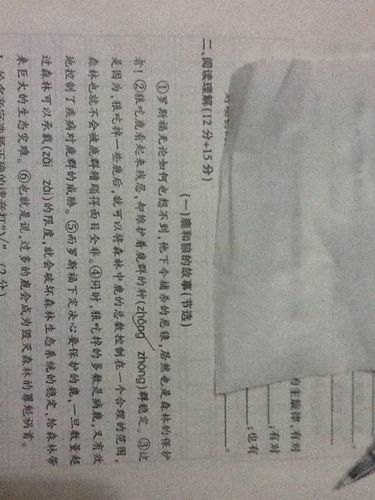 的主旋律,有对
;有对
;也有
。
二、阅读理解(12分+15分)
(一)鹿和狼的故事(节选)
①罗斯福无论如何也想不到,他下令捕杀的恶狼,居然也是森林的保护
者!②狼吃鹿看起来残忍,却维护着鹿群的种(zhǒng zhòng)群稳定。③这
是因为,狼吃掉一些鹿后,就可以将森林中鹿的总数控制在一个合理的范围,
森林也就不会被鹿群糟蹋得面目全非。④同时,狼吃掉的多数是病鹿,又有效
地控制了疾病对鹿群的威胁。⑤而罗斯福下定决心要保护的鹿,一旦数量超
过森林可以承载(zǎi zài)的限度,就会破坏森林生态系统的稳定,给森林带
来巨大的生态灾难。⑥也就是说,过多的鹿会成为毁灭森林的罪魁祸首。
正确的读音打“√”。(2分)